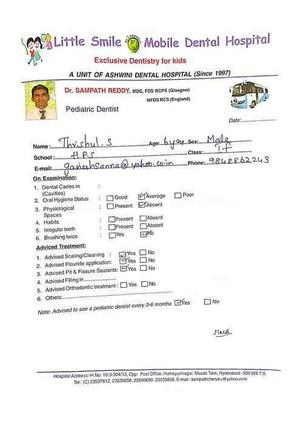 Little Smile Mobile Dental Hospital
Exclusive Dentistry for kids
A UNIT OF ASHWINI DENTAL HOSPITAL (Since 1997)
Dr. SAMPATH REDDY, MDS, FDS RCPS (Glasgow)
MFDS RCS (England)
Pediatric Dentist
Date:
Name: Thrishul.S Age: 6 yrs Sex: Male
School: H.P.S Class: I F
E-mail: @yahoo.co.in Phone: 9848862243
On Examination:
1. Dental Caries in (Cavities)
2. Oral Hygiene Status : Good Average Poor
3. Physiological Spaces : Present Absent
4. Habits : Present Absent
5. Irregular teeth : Present Absent
6. Brushing twice : Yes No
Adviced Treatment:
1. Advised Scaling/Cleaning : Yes No
2. Advised Flouride application: Yes No
3. Advised Pit & Fissure Sealants: Yes No
4. Advised Filling in
5. Advised Orthodontic treatment : Yes No
6. Others:
Note: Advised to see a pediatric dentist every 3-6 months Yes No
Hospital Address: H.No. 10-3-304/13, Opp. Post Office, Humayunnagar, Masab Tank, Hyderabad - 500 028 T.S.